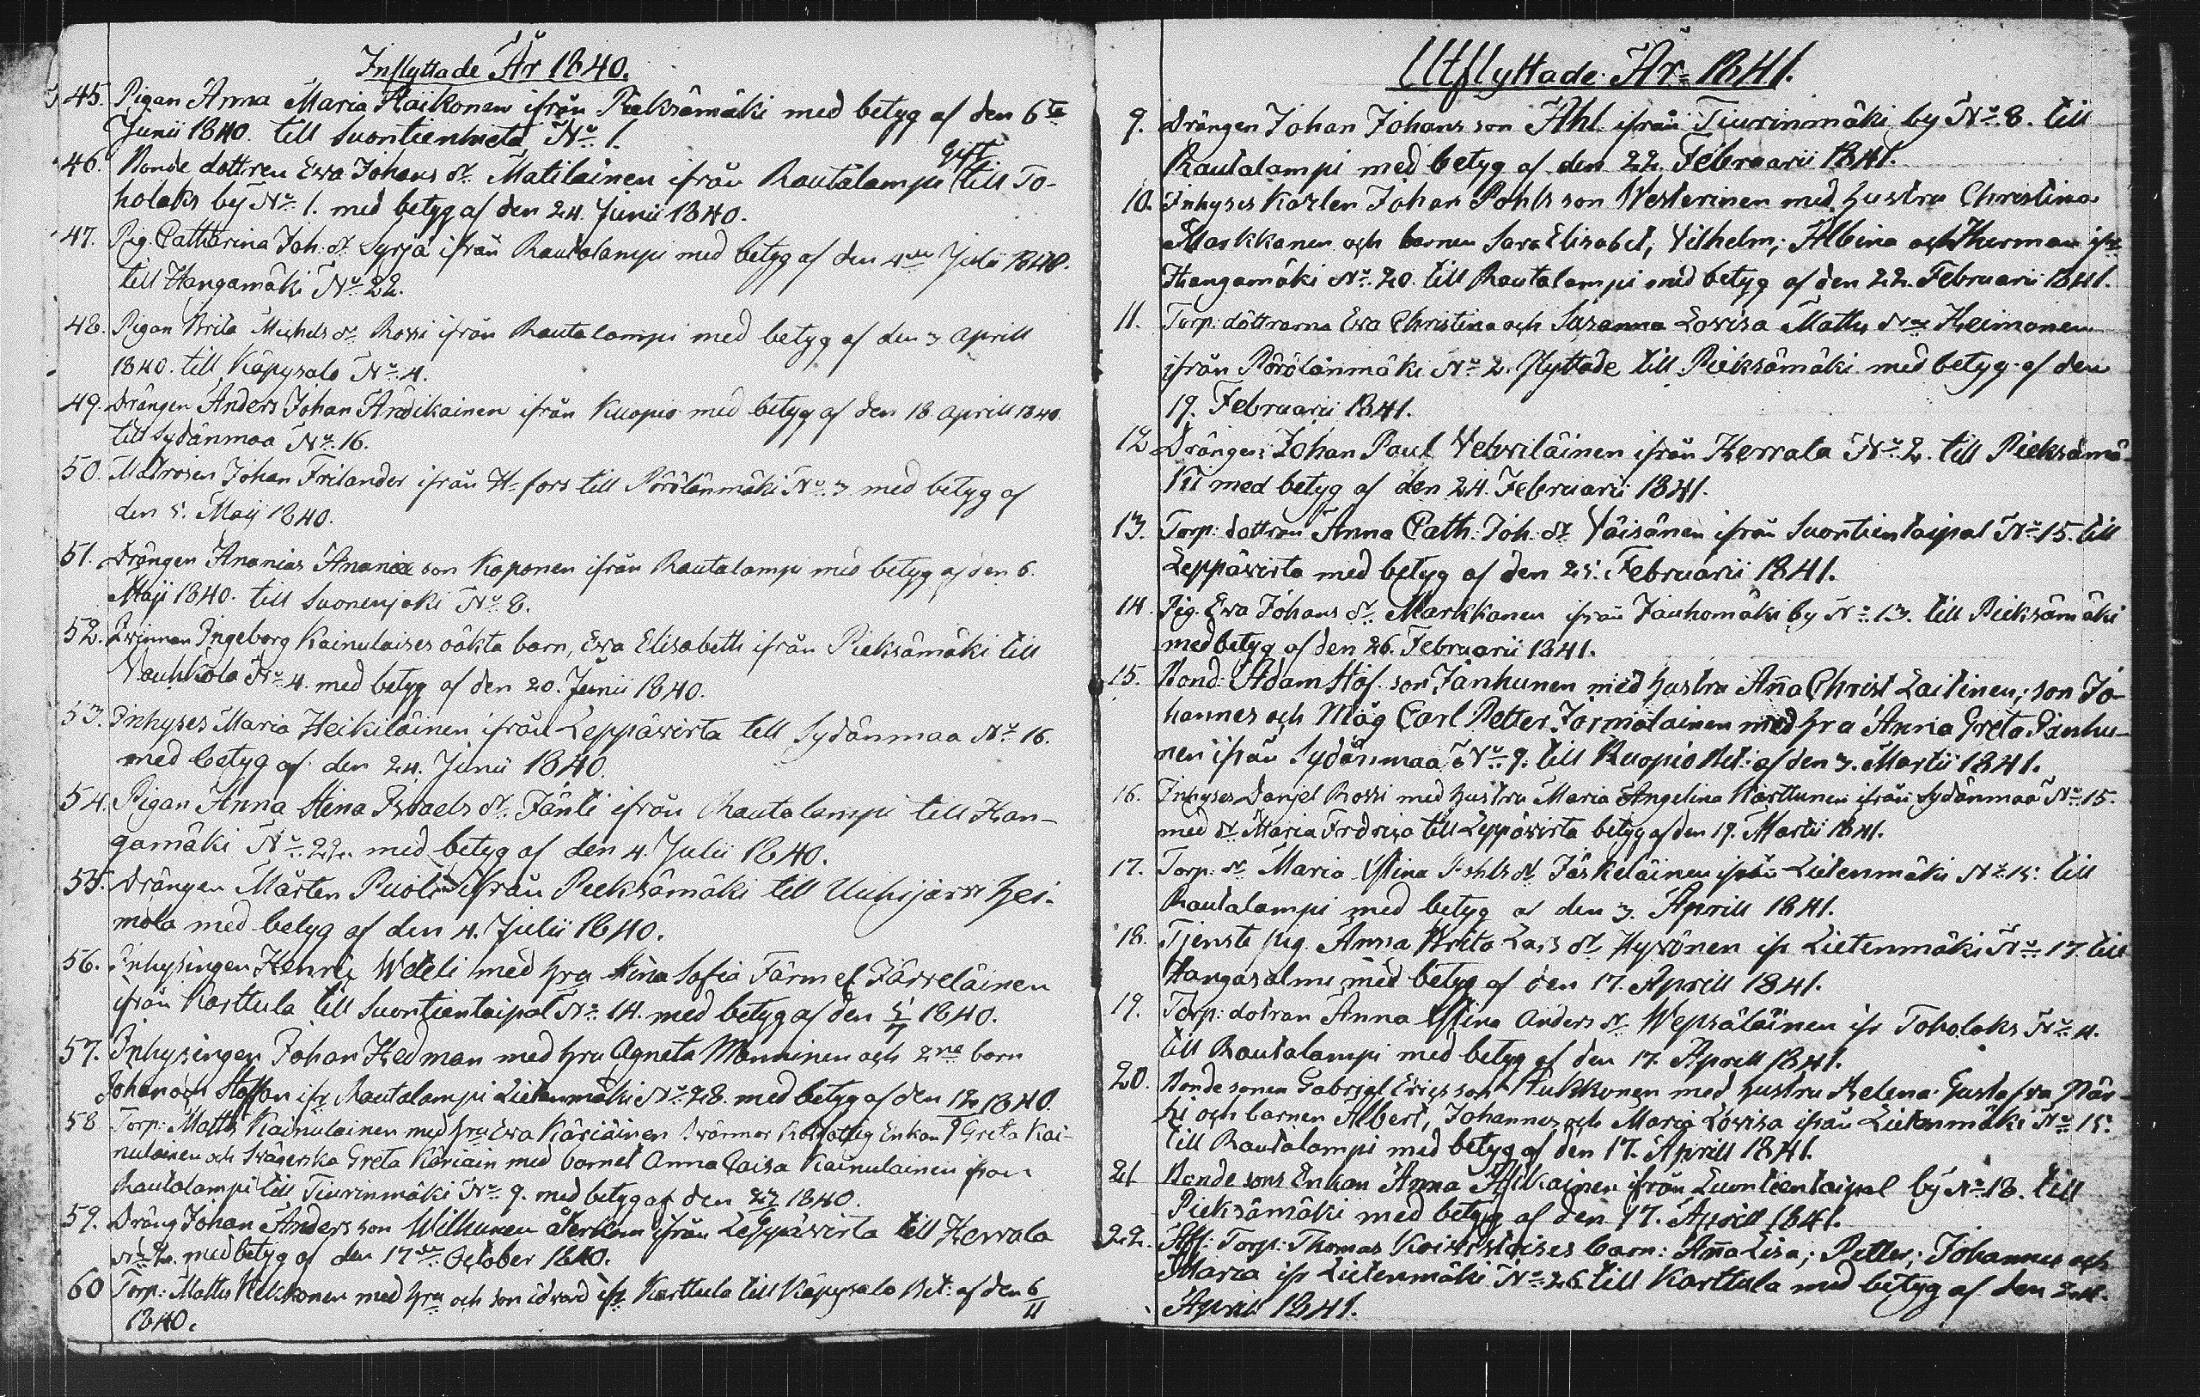 Inflyttade År 1840.
45. Pigan Anna Maria Haikonen ifrån Pieksämäki med betyg af den 6te
Junii 1840. till Suontienhieta No 1.
46. Bonde dottren Ewa Johans dr. Matilainen ifrån Rautalampi gift till To-
holaks by No 1. med betyg af den 24. Junii 1840.
47. Pig. Catharina Joh. dr. Syrjä ifrån Rautalampi med betyg af den 4de Julii 1840.
till Hangamäki No 22.
48. Pigan Brita Michels dr. Rossi ifrån Rautalampi med betyg af den 3 Aprill
1840. till Käpysalo No 4.
49. Drängen Anders Johan Ardikainen ifrån Kuopio med betyg af den 18 Aprill 1840
till Sydänmaa No 16.
50. Matrosen Johan Frilander ifrån H-fors till Pörölänmäki No 3 med betyg af
den 5. Maij 1840.
51. Drängen Ananias Ananiæ son Koponen ifrån Rautalampi med betyg af den 6.
Maji 1840. till Suonenjoki No 8.
52. Qvinnan Ingeborg Kainulaises oäkta barn, Ewa Elisabeth ifrån Pieksämäki till
Vauhkola No 4. med betyg af den 20. Junii 1840.
53. Inhyses Maria Heikiläinen ifrån Leppävirta till Sydänmaa No 16.
med betyg af den 24. Junii 1840.
54. Pigan Anna Stina Israels dr. Jänti ifrån Rautalampi till Han-
gamäki No 22. med betyg af den 4. Julii 1840.
55. Drängen Mårten Puoli ifrån Pieksämäki till Uuhijärvi hei-
mola med betyg af den 4. Julii 1840.
56. Inhysingen Henric Weteli med hru Stina Sofia Färm el Järveläinen
ifrån Karttula till Suontientaipal No 14. med betyg af den 5/7 1840.
57. Inhysingen Johan Hedman med hru Agneta Manninen och 2ne barn
Johan och Staffan ifr Rautalampi Lietenmäki No 28. med betyg af den 1840.
58 Torp: Matts Kainulainen med hru Ewa Käriäinen Enkan Greta Kai-
nulainen och Svägerska Greta Käriain med barnet Anna Caisa Kainulainen ifrån
Rautalampi till Tiurinmäki No 9. med betyg af den 1840.
59. Dräng Johan Anders son Wilhunen återkom ifrån Leppävirta till Herrala
No 2. med betyg af den 17de October 1840.
60 Torp: Matts Kekkonen med hru och son Edvard ifr Karttula till Käpysalo Bet: af den 6/11
1840.
Utflyttade År 1841.
9. Drängen Johan Johans son Ahl ifrån Tiurinmäki by No 8. till
Rautalampi med betyg af den 22. Februarii 1841.
10. Inhyses Karlen Johan Pohls son Westerinen med hustru Christina
Markkanen och barnen Sara Elisabet, Vilhelm, Albina och Herman ifr
Hangamäki No 20. till Rautalampi med betyg af den 22. Februarii 1841.
11. Torp: döttrarna Ewa Christina och Susanna Lovisa Matts drr Heimonen
ifrån Pörölänmäki No 2. flyttade till Pieksämäki med betyg af den
19. Februarii 1841.
12 Drängen Johan Paul Vehviläinen ifrån Herrala No 2. till Pieksämä-
ki med betyg af den 24. Februarii 1841.
13. Torp: dottren Anna Cath: Joh: dr. Väisänen ifrån Suontientaipal No 15. till
Leppävirta med betyg af den 25. Februarii 1841.
14. Pig. Ewa Johans dr. Markkanen ifrån Jauhomäki by No 13. till Pieksämäki
med betyg af den 26. Februarii 1841.
15. Bond: Adam Stof. son Janhunen med hustru Anna Christ Laitinen; son Jo-
hannes och Måg Carl Petter Jormalainen med hru Anna Greta Janhu-
nen ifrån Sydänmaa No 9. till Kuopio Bet: af den 3. Martii 1841.
16. Inhyses Danjel Rossi med hustru Maria Angelina Karttunen ifrån Sydänmaa No 15.
med dr Maria Fredrica till Leppävirta betyg af den 19. Martii 1841.
17. Torp: dr Maria Stina Pohls dr Jäskeläinen ifrån Lietenmäki No 15. till
Rautalampi med betyg af den 3. Aprill 1841.
18. Tjenste pig. Anna Brita Lars dr. Hyvönen ifr Lietenmäki No 17. till
Hangasalmi med betyg af den 17. Aprill 1841.
19. Torp: dotran Anna Stina Anders dr. Wepsäläinen ifr Toholaks No 4.
till Rautalampi med betyg af den 17. Aprill 1841.
20. Bonde sonen Gabriel Ericsson Hukkonen med hustru Helena Gustafva När-
hi och barnen Albert, Johannes och Maria Lovisa ifrån Lietenmäki No 15.
till Rautalampi med betyg af den 17. Aprill 1841.
21 Bonde sons Enkan Anna ifrån Suontientaipal by No 18. till
Pieksämäki med betyg af den 17. Aprill 1841.
22. Aff: Torp: Thomas Koivistoises barn: Anna Lisa; Petter; Johannes och
Maria ifr Lietenmäki No 26 till Karttula med betyg af den 24.
Aprill 1841.